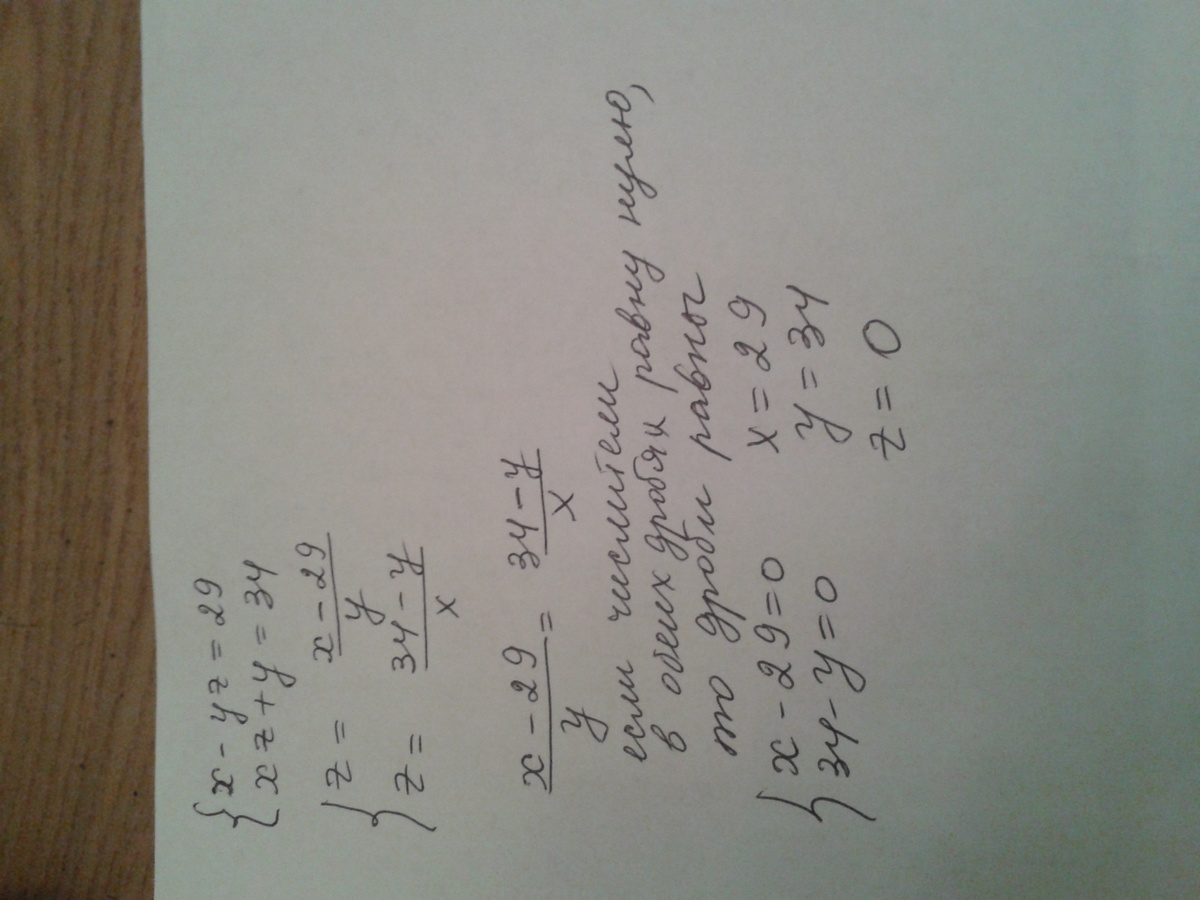 { x - yz = 29
xz + y = 34
{ z = x - 29 / y
z = 34 - y / x
x - 29 / y = 34 - y / x
если числители
в обеих дробях равну нулю,
то дроби равны
{ x - 29 = 0 x = 29
34 - y = 0 y = 34
z = 0